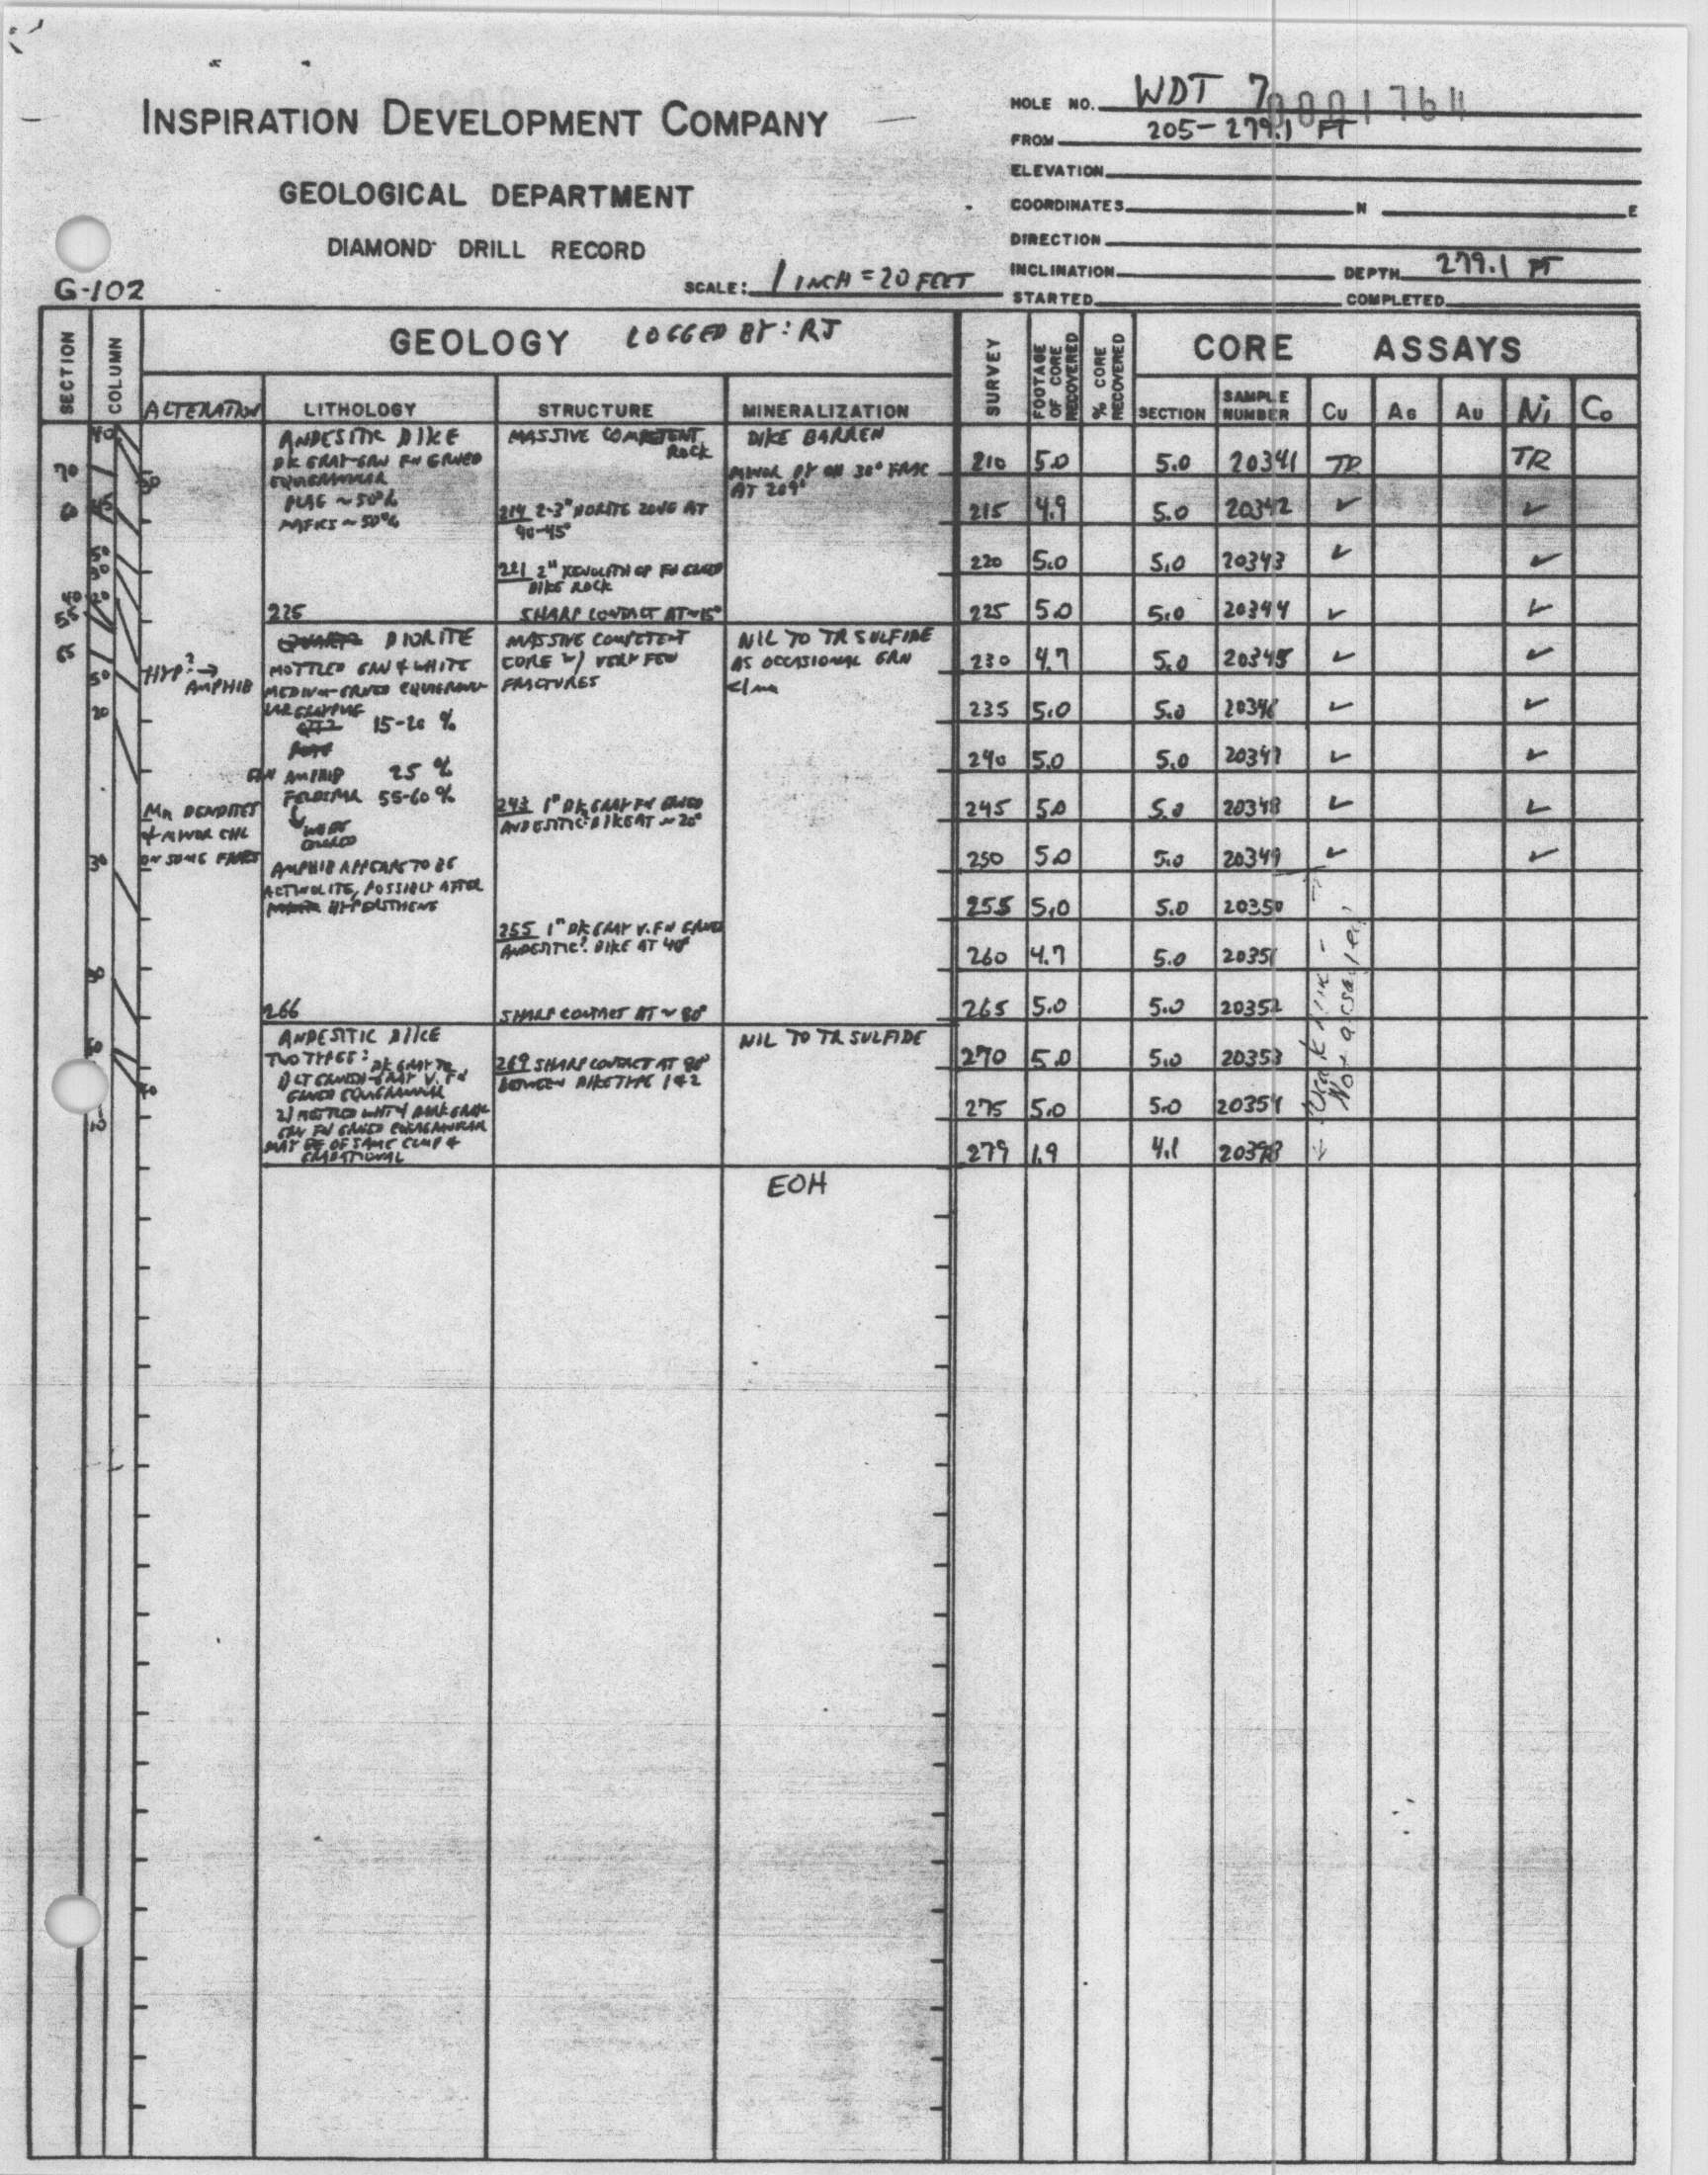 INSPIRATION DEVELOPMENT COMPANY
GEOLOGICAL DEPARTMENT
DIAMOND DRILL RECORD
G-102
SCALE: 1 INCH = 20 FEET
HOLE NO. WDT 7
0001764
FROM 205-279.1 FT
ELEVATION
COORDINATES N E
DIRECTION
INCLINATION DEPTH 279.1 FT
STARTED COMPLETED
SECTION
COLUMN
GEOLOGY LOGGED BY: RJ
ALTERATION LITHOLOGY STRUCTURE MINERALIZATION
SURVEY
FOOTAGE OF CORE RECOVERED
% CORE RECOVERED
CORE ASSAYS
SECTION SAMPLE NUMBER Cu AG AU Ni Co
70
60
40
55
65
40
45
50
30
20
50
20
30
30
50
HYP? →
AMPHIB
Mn DENDRITES
+ MINOR CHL
ON SOME FRACS
ANDESITIC DIKE
DK GRAY-GRN FN GRNED
EQUIGRANULAR
PLAG ~50%
MAFICS ~50%
225
DIORITE
MOTTLED GRN & WHITE
MEDIUM-GRNED EQUIGRANU-
15-20 %
GRN AMPHIB 25 %
FELDSPAR 55-60 %
AMPHIB APPEARS TO BE
ACTINOLITE, POSSIBLY AFTER
HYPERSTHENE
266
ANDESITIC DIKE
TWO TYPES: DK GRAY TO
GRNED EQUIGRANULAR
GRN FN GRNED EQUIGRANULAR
MAY BE OF SAME COMP &
GRADATIONAL
MASSIVE COMPETENT
ROCK
214 2-3" NORITE ZONE AT
40-45°
221 2" XENOLITH OF FN GRNED
DIKE ROCK
SHARP CONTACT AT ~15°
MASSIVE COMPETENT
CORE W/ VERY FEW
FRACTURES
243 1" DK GRAY FN GRNED
ANDESITIC DIKE AT ~20°
255 1" DK GRAY V. FN GRNED
ANDESITIC? DIKE AT 40°
SHARP CONTACT AT ~80°
269 SHARP CONTACT AT 80°
BETWEEN DIKE TYPE 1 & 2
DIKE BARREN
MINOR PY ON 30° FRAC
AT 209'
NIL TO TR SULFIDE
AS OCCASIONAL GRN
<1mm
NIL TO TR SULFIDE
EOH
210 5.0 5.0 20341 TR TR
215 4.9 5.0 20342 ✓ ✓
220 5.0 5.0 20343 ✓ ✓
225 5.0 5.0 20344 ✓ ✓
230 4.7 5.0 20345 ✓ ✓
235 5.0 5.0 20346 ✓ ✓
240 5.0 5.0 20347 ✓ ✓
245 5.0 5.0 20348 ✓ ✓
250 5.0 5.0 20349 ✓ ✓
255 5.0 5.0 20350
260 4.7 5.0 20351
265 5.0 5.0 20352
270 5.0 5.0 20353
275 5.0 5.0 20354
279 1.9 4.1 20398
Not assayed